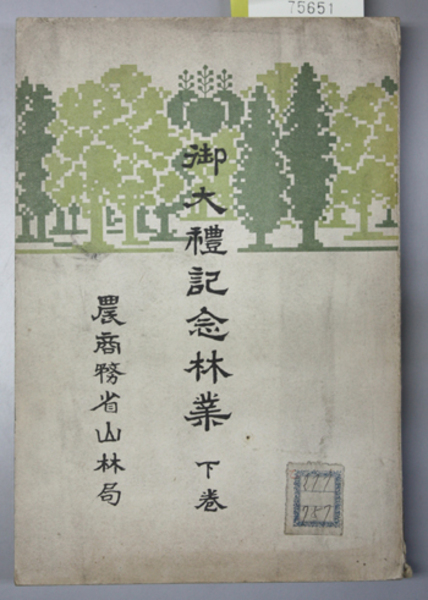 75651
御大禮記念林業 下巻
農商務省山林局